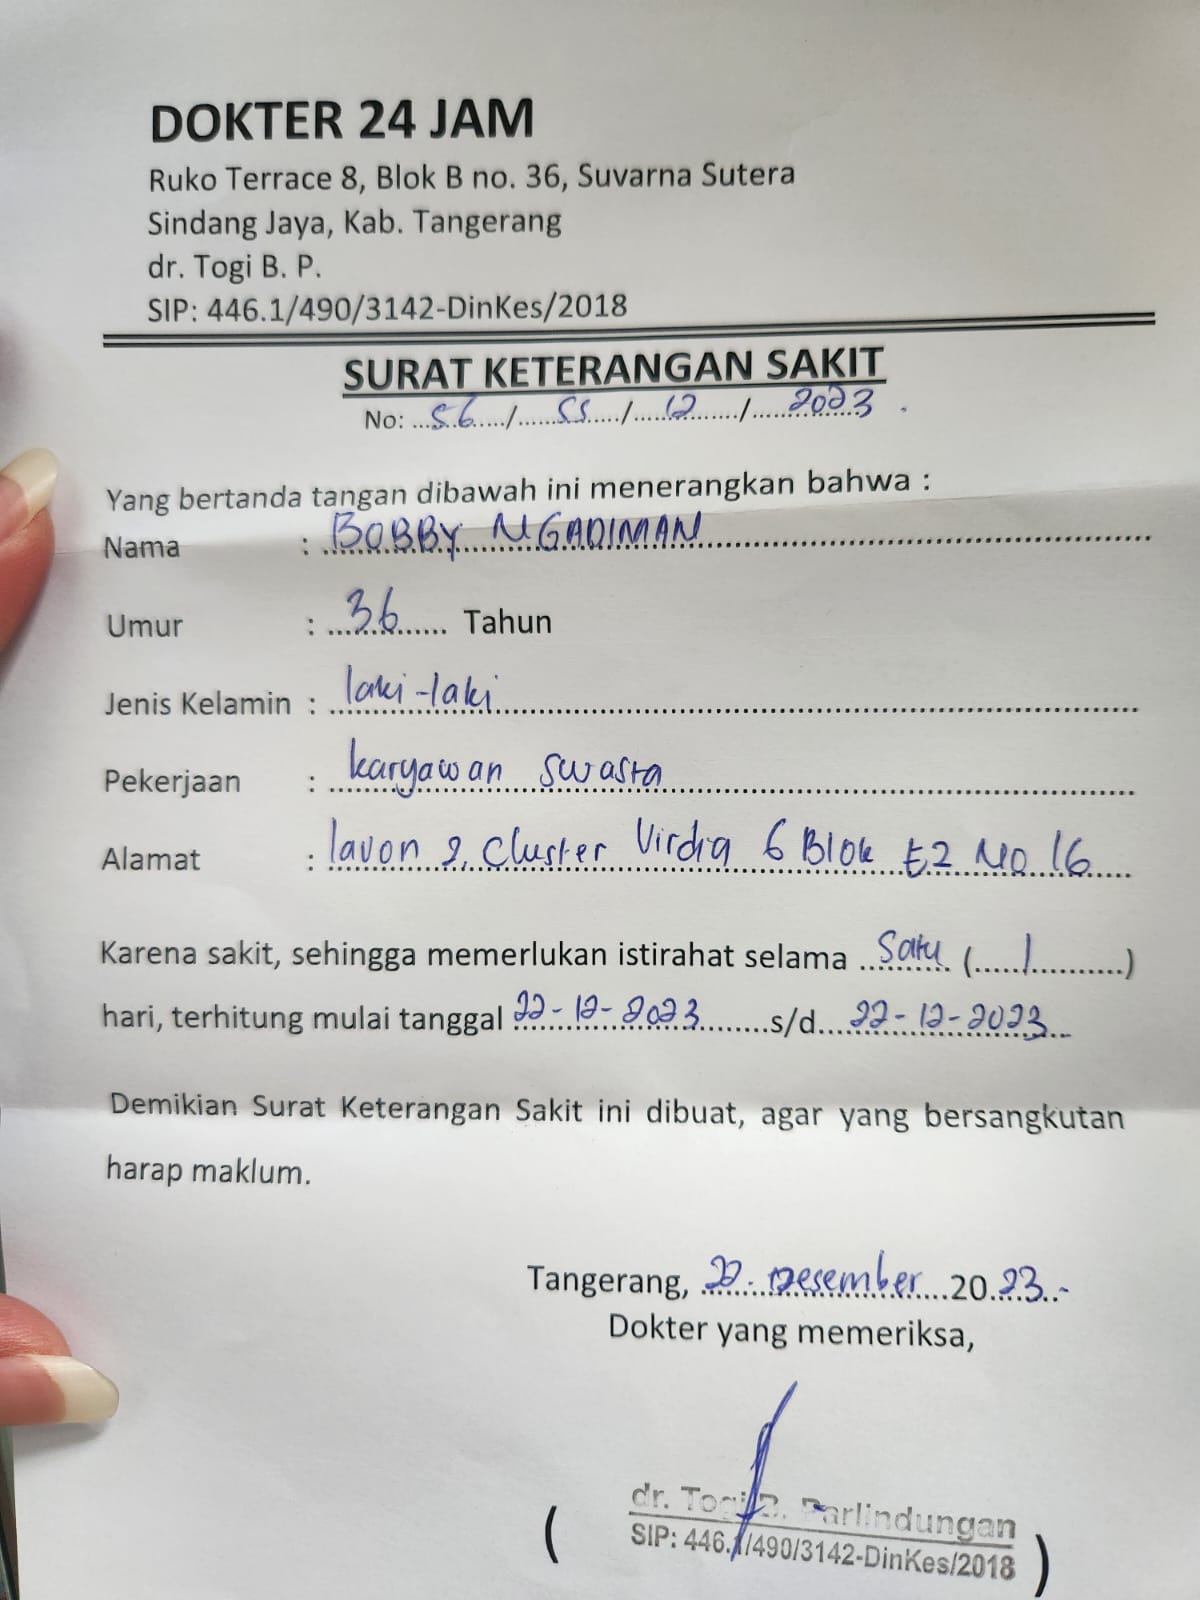 DOKTER 24 JAM
Ruko Terrace 8, Blok B no. 36, Suvarna Sutera
Sindang Jaya, Kab. Tangerang
dr. Togi B. P.
SIP: 446.1/490/3142-DinKes/2018
SURAT KETERANGAN SAKIT
No: 56 / SS / 12 / 2023
Yang bertanda tangan dibawah ini menerangkan bahwa :
Nama : BOBBY NGADIMAN
Umur : 36 Tahun
Jenis Kelamin : laki-laki
Pekerjaan : karyawan swasta
Alamat : lavon 2, Cluster Virdia 6 Blok E2 No 16
Karena sakit, sehingga memerlukan istirahat selama Satu ( 1 )
hari, terhitung mulai tanggal 22-12-2023 s/d 22-12-2023
Demikian Surat Keterangan Sakit ini dibuat, agar yang bersangkutan
harap maklum.
Tangerang, 22 Desember 2023
Dokter yang memeriksa,
( dr. Togi B. Parlindungan
SIP: 446.1/490/3142-DinKes/2018 )